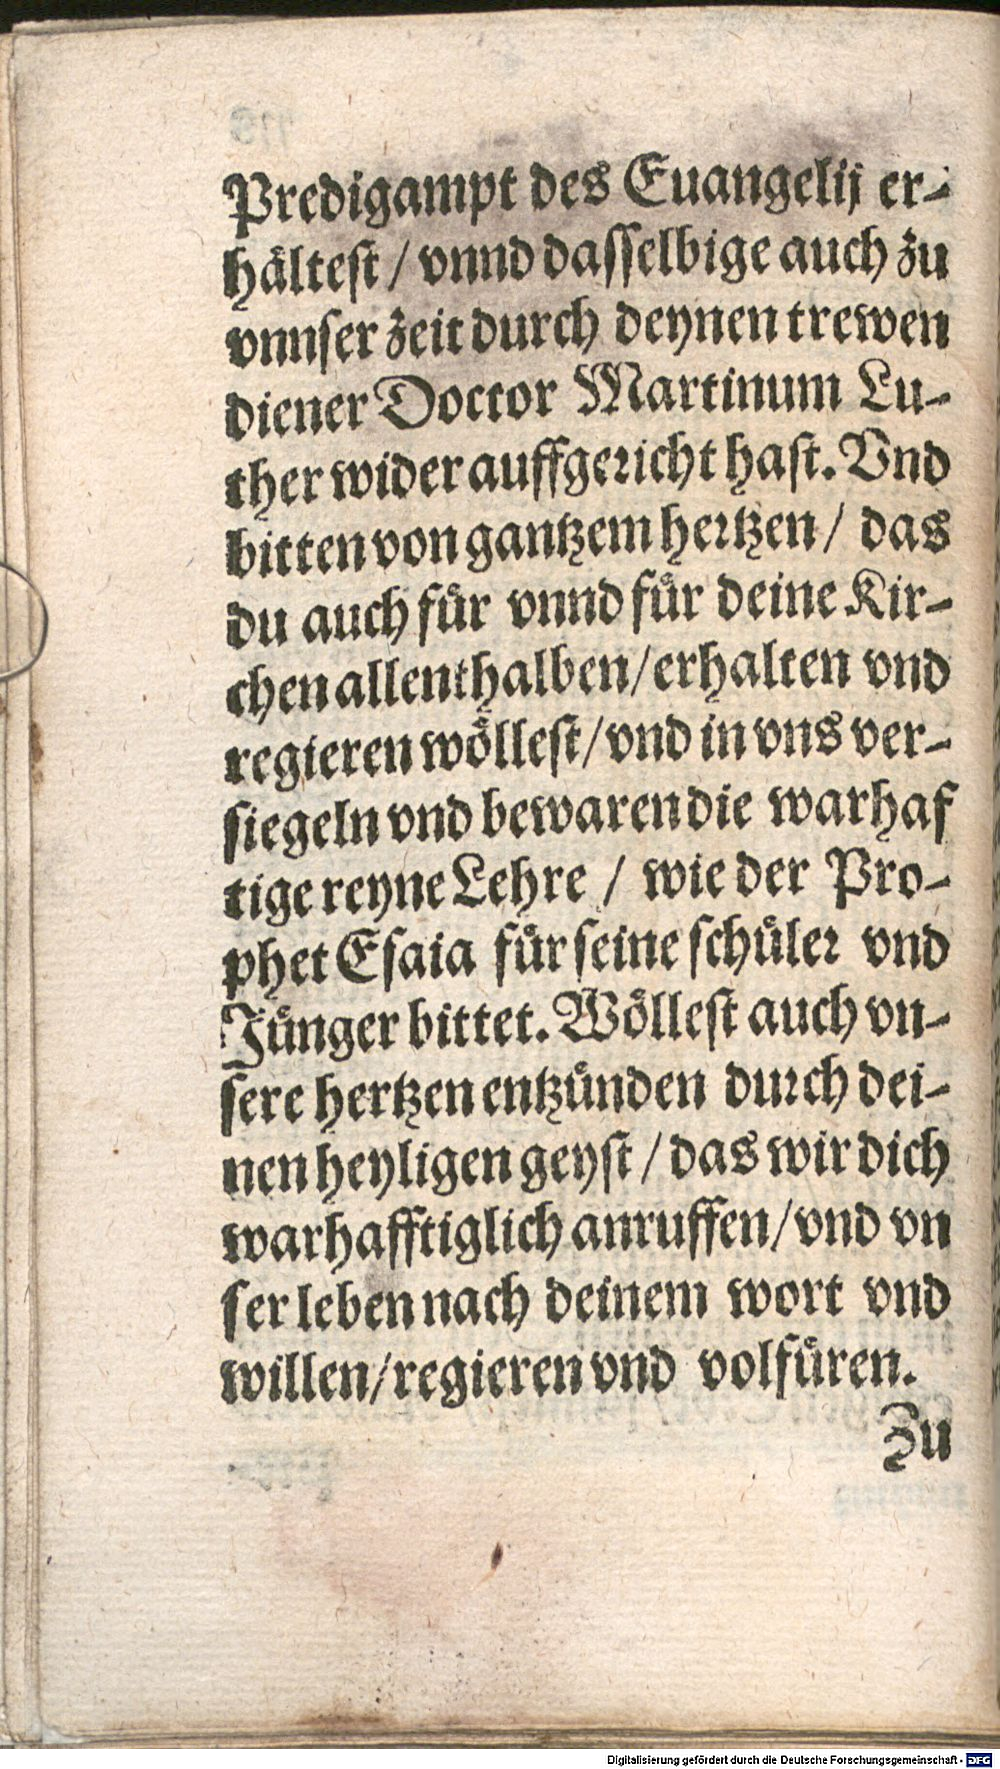 Predigampt des Euangelij er-
håltest / vnnd dasselbige auch zu
vnnser zeit durch deynen trewen
diener Doctor Martinum Lu-
ther wider auffgericht hast. Vnd
bitten von gantzem hertzen / das
du auch fůr vnnd fůr deine Kir-
chen allenthalben / erhalten vnd
regieren wöllest / vnd in vns ver-
siegeln vnd bewaren die warhaf
tige reyne Lehre / wie der Pro-
phet Esaia fůr seine schůler vnd
Jůnger bittet. Wöllest auch vn-
sere hertzen entzůnden durch dei-
nen heyligen geyst / das wir dich
warhafftiglich anruffen / vnd vn
ser leben nach deinem wort vnd
willen / regieren vnd volfůren.
Zu
Digitalisierung gefördert durch die Deutsche Forschungsgemeinschaft - DFG